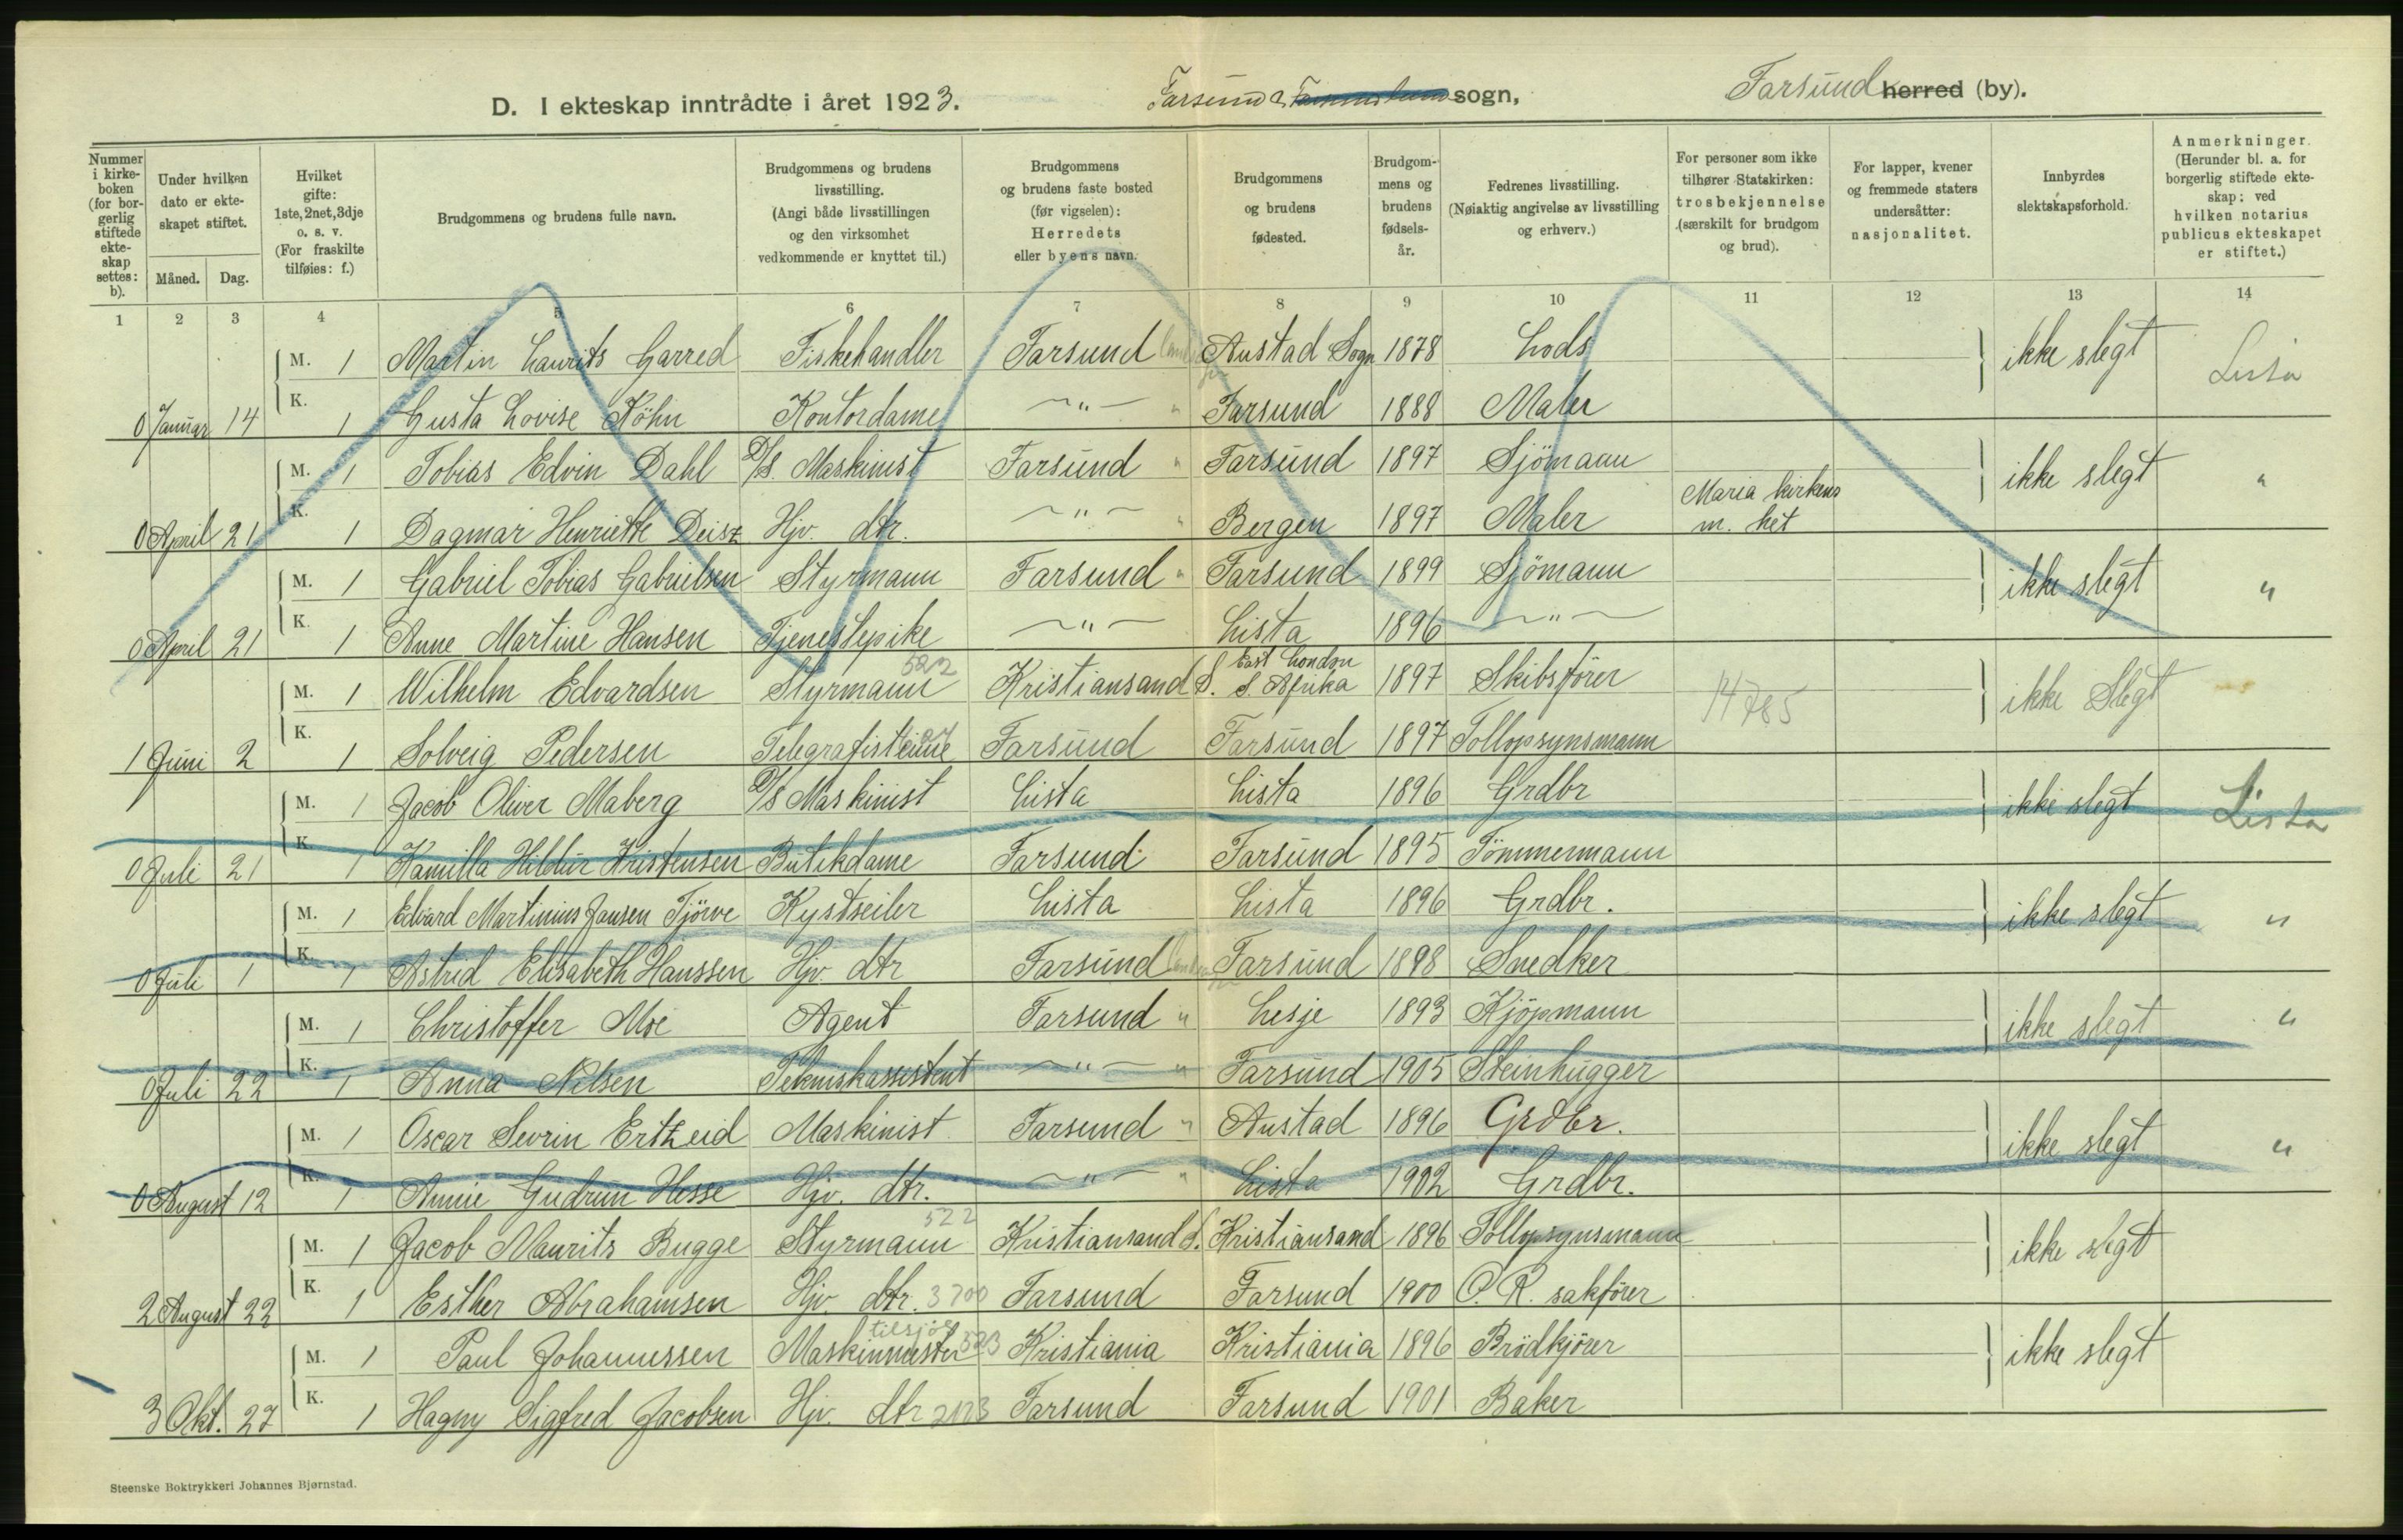 D. I ekteskap inntrådte i året 1923. Farsund sogn, Farsund herred (by).
Nummer i kirkeboken (for borgerlig stiftede ekteskap settes: b).
Under hvilken dato er ekteskapet stiftet.
Måned. Dag.
Hvilket gifte: 1ste, 2net, 3dje o. s. v. (For fraskilte tilføies: f.)
Brudgommens og brudens fulle navn.
Brudgommens og brudens livsstilling. (Angi både livsstillingen og den virksomhet vedkommende er knyttet til.)
Brudgommens og brudens faste bosted (før vigselen): Herredets eller byens navn.
Brudgommens og brudens fødested.
Brudgommens og brudens fødselsår.
Fedrenes livsstilling. (Nøiaktig angivelse av livsstilling og erhverv.)
For personer som ikke tilhører Statskirken: trosbekjennelse (særskilt for brudgom og brud).
For lapper, kvener og fremmede staters undersåtter: nasjonalitet.
Innbyrdes slektskapsforhold.
Anmerkninger. (Herunder bl. a. for borgerlig stiftede ekteskap: ved hvilken notarius publicus ekteskapet er stiftet.)
1 2 3 4 5 6 7 8 9 10 11 12 13 14
M. 1 Martin Laurits Garred Fiskehandler Farsund Austad Sogn 1878 Lods ikke slegt Lista
0 Januar 14 K. 1 Gusta Lovise Köhn Kontordame –"– " Farsund 1888 Maler
M. 1 Tobias Edvin Dahl D/S. Maskinist Farsund " Farsund 1897 Sjömann ikke slegt "
0 April 21 K. 1 Dagmar Henriette Deisz Hjv. dtr. –"– " Bergen 1897 Maler Maria kirkens m. het
M. 1 Gabriel Tobias Gabrielsen Styrmann Farsund " Farsund 1899 Sjömann ikke slegt "
0 April 21 K. 1 Anne Martine Hansen Tjenestepike –"– Lista 1896 –"–
M. 1 Wilhelm Edvardsen Styrmann 522 Kristiansand S. East London S. Afrika 1897 Skibsförer 14785 ikke Slegt
1 Juni 2 K. 1 Solveig Pedersen Telegrafistinne Farsund Farsund 1897 Tollopsynsmann
M. 1 Jacob Oliver Maberg D/S Maskinist Lista Lista 1896 Grdbr ikke slegt Lista
0 Juli 21 K. 1 Kamilla Hildur Kristensen Butikdame Farsund Farsund 1895 Tömmermann
M. 1 Edvard Martinius Jansen Tjörve Kystseiler Lista Lista 1896 Grdbr. ikke slegt "
0 Juli 1 K. 1 Astrid Elisabeth Hanssen Hjv. dtr Farsund Farsund 1898 Snedker
M. 1 Christoffer Moe Agent Farsund " Lesje 1893 Kjöpmann ikke slegt "
0 Juli 22 K. 1 Anna Nilsen Teknikassistent –"– " Farsund 1905 Steinhugger
M. 1 Oscar Sevrin Ertzeid Maskinist Farsund " Austad 1896 Grdbr. ikke slegt "
0 August 12 K. 1 Annie Gudrun Hesse Hjv. dtr. –"– " Lista 1902 Grdbr.
M. 1 Jacob Maurits Bugge Styrmann 522 Kristiansand S. Kristiansand 1896 Tollopsynsmann ikke slegt
2 August 22 K. 1 Esther Abrahamsen Hjv. dtr. 3700 Farsund Farsund 1900 O. R. sakförer
M. 1 Paul Johannessen Maskinmester tilsjös 523 Kristiania Kristiania 1896 Brödkjörer ikke slegt
3 Okt. 27 K. 1 Hagny Sigfred Jacobsen Hjv. dtr Farsund Farsund 1901 Baker
Steenske Boktrykkeri Johannes Bjørnstad.